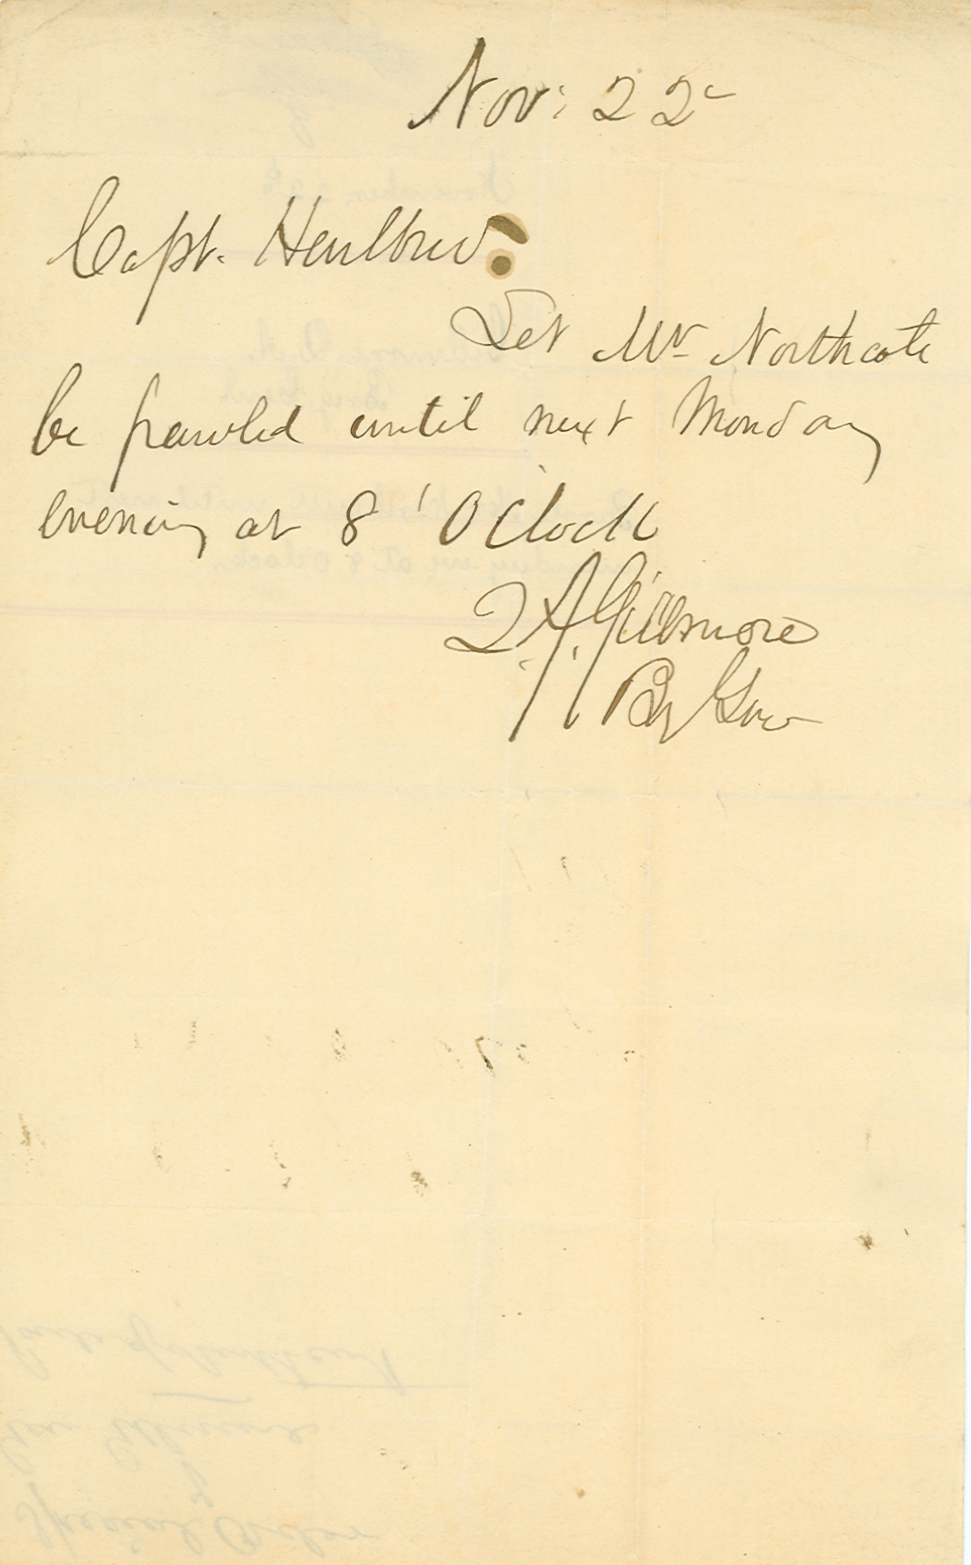 Nov: 22
Capt.
Let Mr Northcote
be paroled until next Monday
evening at 8 'O Clock
Q. A. Gillmore
Brg Gen